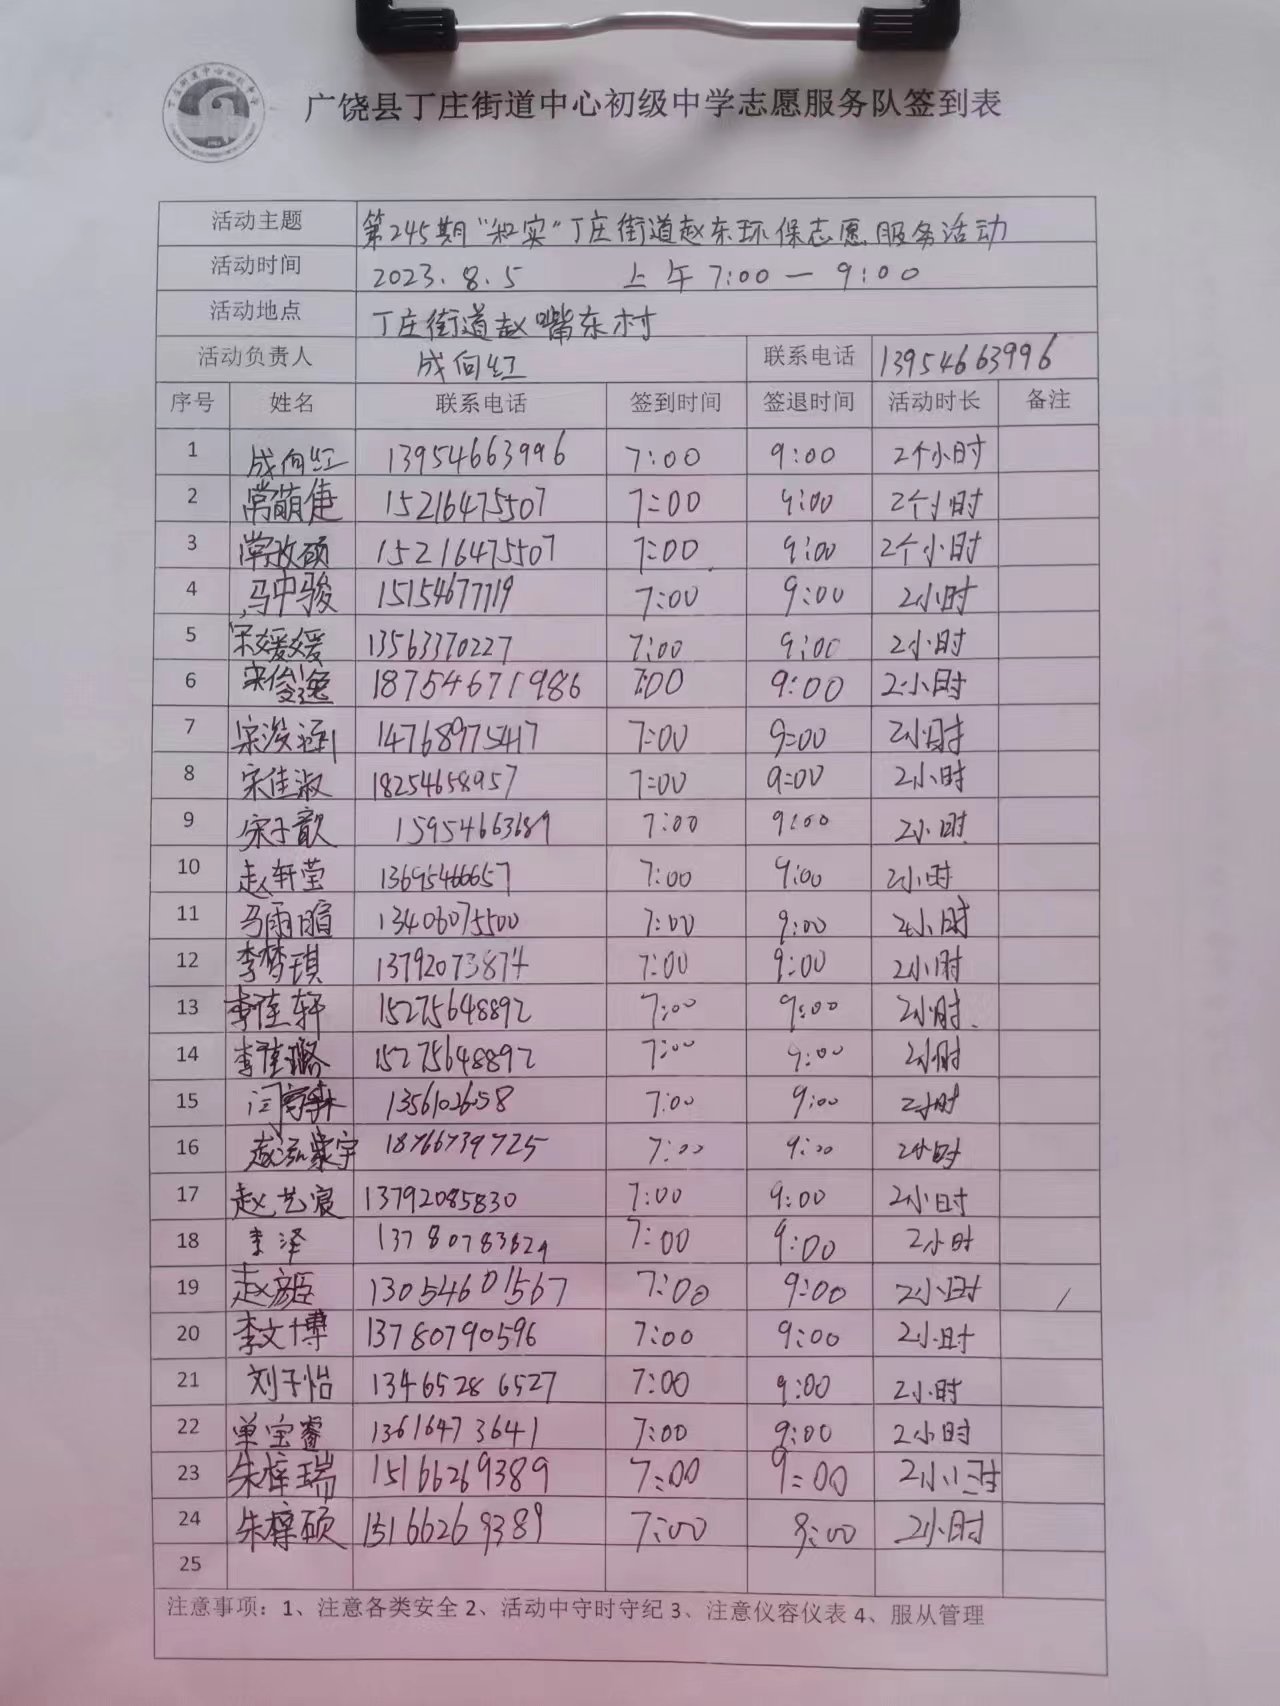 广饶县丁庄街道中心初级中学志愿服务队签到表
活动主题 第245期"和实"丁庄街道赵东环保志愿服务活动
活动时间 2023.8.5 上午7:00一9:00
活动地点 丁庄街道赵嘴东村
活动负责人 成向红 联系电话 13954663996
序号 姓名 联系电话 签到时间 签退时间 活动时长 备注
1 成向红 13954663996 7:00 9:00 2个小时
2 常萌倢 15216475507 7:00 9:00 2个小时
3 常攸硕 15216475507 7:00 9:00 2个小时
4 马中骏 15154677719 7:00 9:00 2小时
5 宋媛媛 13563370227 7:00 9:00 2小时
6 宋俊逸 18754671986 7:00 9:00 2小时
7 宋浚涵 14768975417 7:00 9:00 2小时
8 宋佳淑 18254658957 7:00 9:00 2小时
9 宋子歆 15954663689 7:00 9:00 2小时
10 赵轩莹 13695466657 7:00 9:00 2小时
11 马雨暄 13406075500 7:00 9:00 2小时
12 李梦琪 13792073874 7:00 9:00 2小时
13 李佳轩 15275648892 7:00 9:00 2小时
14 李佳璐 15275648892 7:00 9:00 2小时
15 7:00 9:00 2小时
16 赵泓寰宇 18766739725 7:00 9:00 2小时
17 赵艺宸 13792085830 7:00 9:00 2小时
18 李泽 13780783829 7:00 9:00 2小时
19 赵彦臣 13054601567 7:00 9:00 2小时
20 李文博 13780790596 7:00 9:00 2小时
21 刘子怡 13465286527 7:00 9:00 2小时
22 单宝睿 13616473641 7:00 9:00 2小时
23 朱梓瑞 15166269389 7:00 9:00 2小时
24 朱椁硕 15166269389 7:00 9:00 2小时
25
注意事项：1、注意各类安全 2、活动中守时守纪 3、注意仪容仪表 4、服从管理